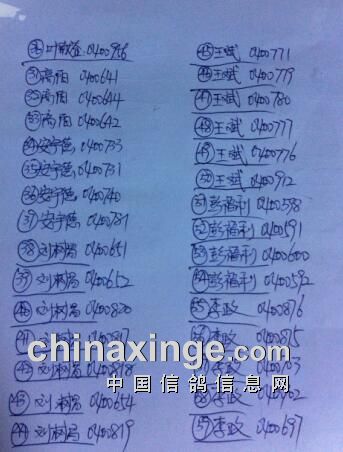 ㉚叶敬盛 0400936
㉛高阳 0400641
㉜高阳 0400644
㉝高阳 0400642
㉞安宇德 0400733
㉟安宇德 0400731
㊱安宇德 0400740
㊲安宇德
㊳刘树昌 0400651
㊴刘树昌 0400652
㊵刘树昌 0400820
㊶刘树昌
㊷刘树昌 0400818
㊸刘树昌 0400654
㊹刘树昌 0400819
㊺王斌 0400771
㊻王斌 0400779
㊼王斌 0400780
㊽王斌 0400777
㊾王斌 0400776
㊿王斌 0400912
51彭福利 0400598
52彭福利 0400591
53彭福利 0400600
54彭福利 0400592
55李政 0400876
李政 0400875
李政
李政
59李政 0400697
chinaxinge.com
中国信鸽信息网